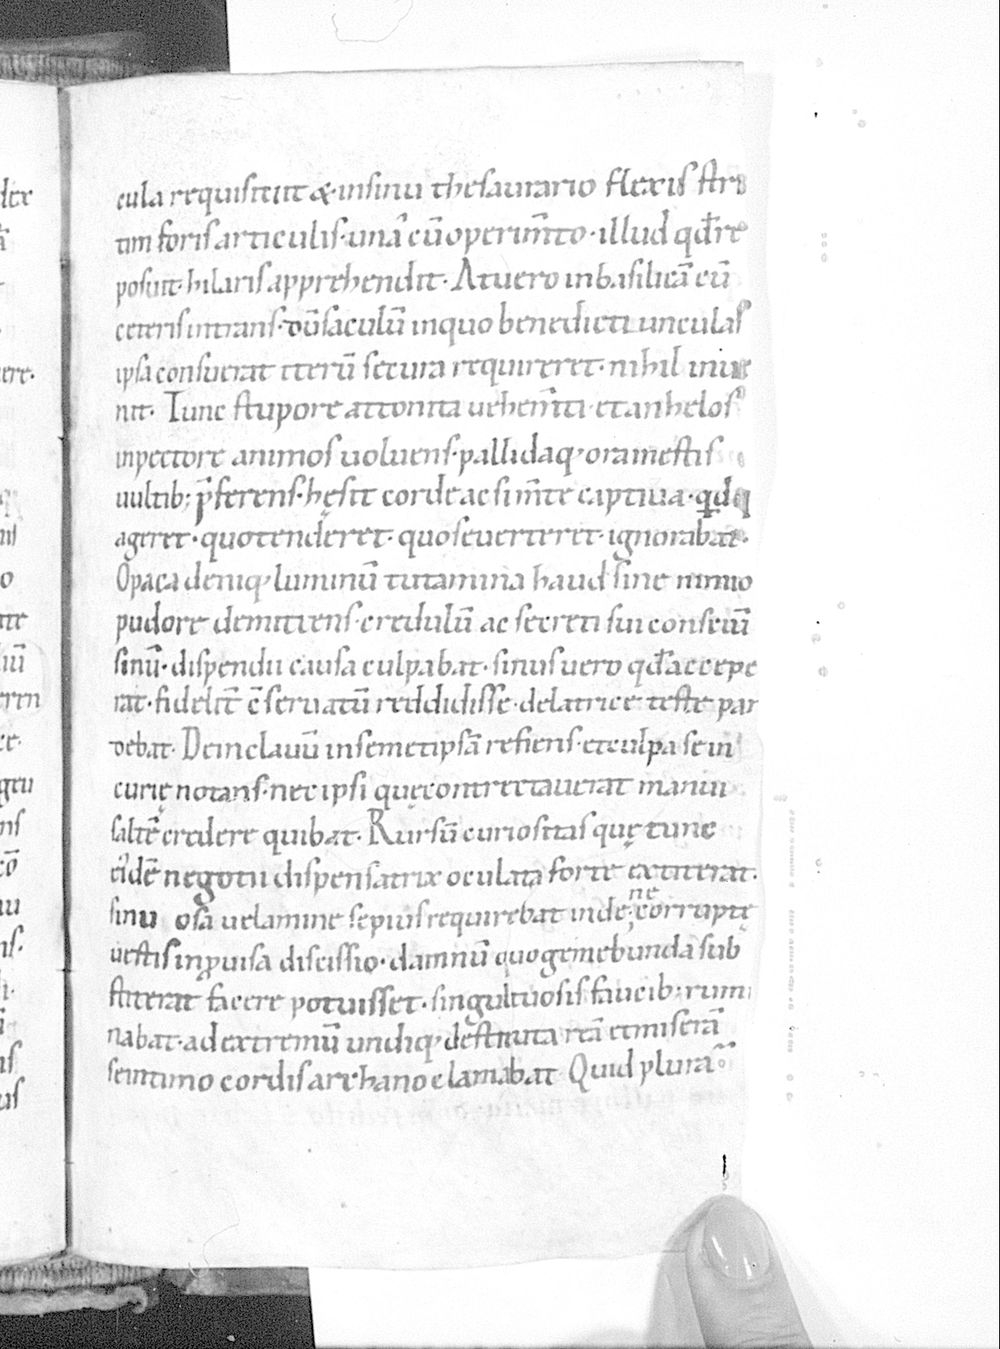 cula requisiuit &· insinu thesaurario flexis stri
tim foris articulis· unā cū operim̄to· illud qd̄ re
posuit· hilaris apprehendit· At uero in basilicā cū
ceteris intrans· dū saculū in quo benedicti unculas
ipsa consuerat iterū secura requireret· nihil inue
nit· Tunc stupore attonita uehem̄ti· et anhelos
in pectore animos uoluens· pallidaq; ora mestis
uultib; p̄ferens· hęsit corde ac sim̄te captiua· qd
ageret· quo tenderet· quo se uerteret· ignorabat·
Opaca deniq; luminū tutamina haud sine nimio
pudore demittens· credulū ac secreti sui consciū
sinū· dispendii causa culpabat· sinus uero qd̄ accepe
rat· fidelit̄ c̄seruatū reddidisse· delatrice teste par
debat· Dein clauū in semetipsā refiens· et culpa se in
curię notans· nec ipsi quę contrectauerat manui
saltē credere quibat· Rursū curiositas quę tunc
ei'dē negotii dispensatrix oculata forte extiterat·
sinu osa uelamine sepius requirebat inde; ne corruptę
uestis inpuisa discissio· damnū quo gemebunda sub
stiterat facere potuisset· singultuosis faucib; rumi
nabat· ad extremū undiq; destituta reā et miserā
se intimo cordis archano clamabat· Quid plura